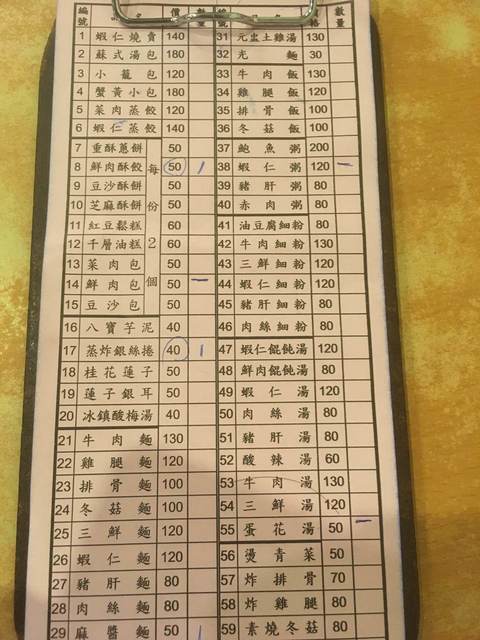 編號 品名 價 數量
1 蝦仁燒賣 140
2 蘇式湯包 120
3 小籠包 120
4 蟹黃小包 180
5 菜肉蒸餃 120
6 蝦仁蒸餃 140
7 重酥蔥餅 50
8 鮮肉酥餃 50 1
9 豆沙酥餅 50
10 芝麻酥餅 50
11 紅豆鬆糕 60
12 千層油糕 60
13 菜肉包 50
14 鮮肉包 50 一
15 豆沙包 50
每份2個
16 八寶芋泥 40
17 蒸炸銀絲捲 40 1
18 桂花蓮子 50
19 蓮子銀耳 50
20 冰鎮酸梅湯 40
21 牛肉麵 130
22 雞腿麵 120
23 排骨麵 100
24 冬菇麵 100
25 三鮮麵 120
26 蝦仁麵 120
27 豬肝麵 80
28 肉絲麵 80
29 麻醬麵 50 1
編號 品名 價格 數量
31 元盅土雞湯 130
32 光麵 30
33 牛肉飯 130
34 雞腿飯 120
35 排骨飯 100
36 冬菇飯 100
37 鮑魚粥 200
38 蝦仁粥 120 一
39 豬肝粥 80
40 赤肉粥 80
41 油豆腐細粉 80
42 牛肉細粉 130
43 三鮮細粉 120
44 蝦仁細粉 120
45 豬肝細粉 80
46 肉絲細粉 80
47 蝦仁餛飩湯 120
48 鮮肉餛飩湯 80
49 蝦仁湯 120
50 肉絲湯 80
51 豬肝湯 80
52 酸辣湯 60
53 牛肉湯 130
54 三鮮湯 120
55 蛋花湯 50 一
56 燙青菜 50
57 炸排骨 70
58 炸雞腿 80
59 素燒冬菇 80